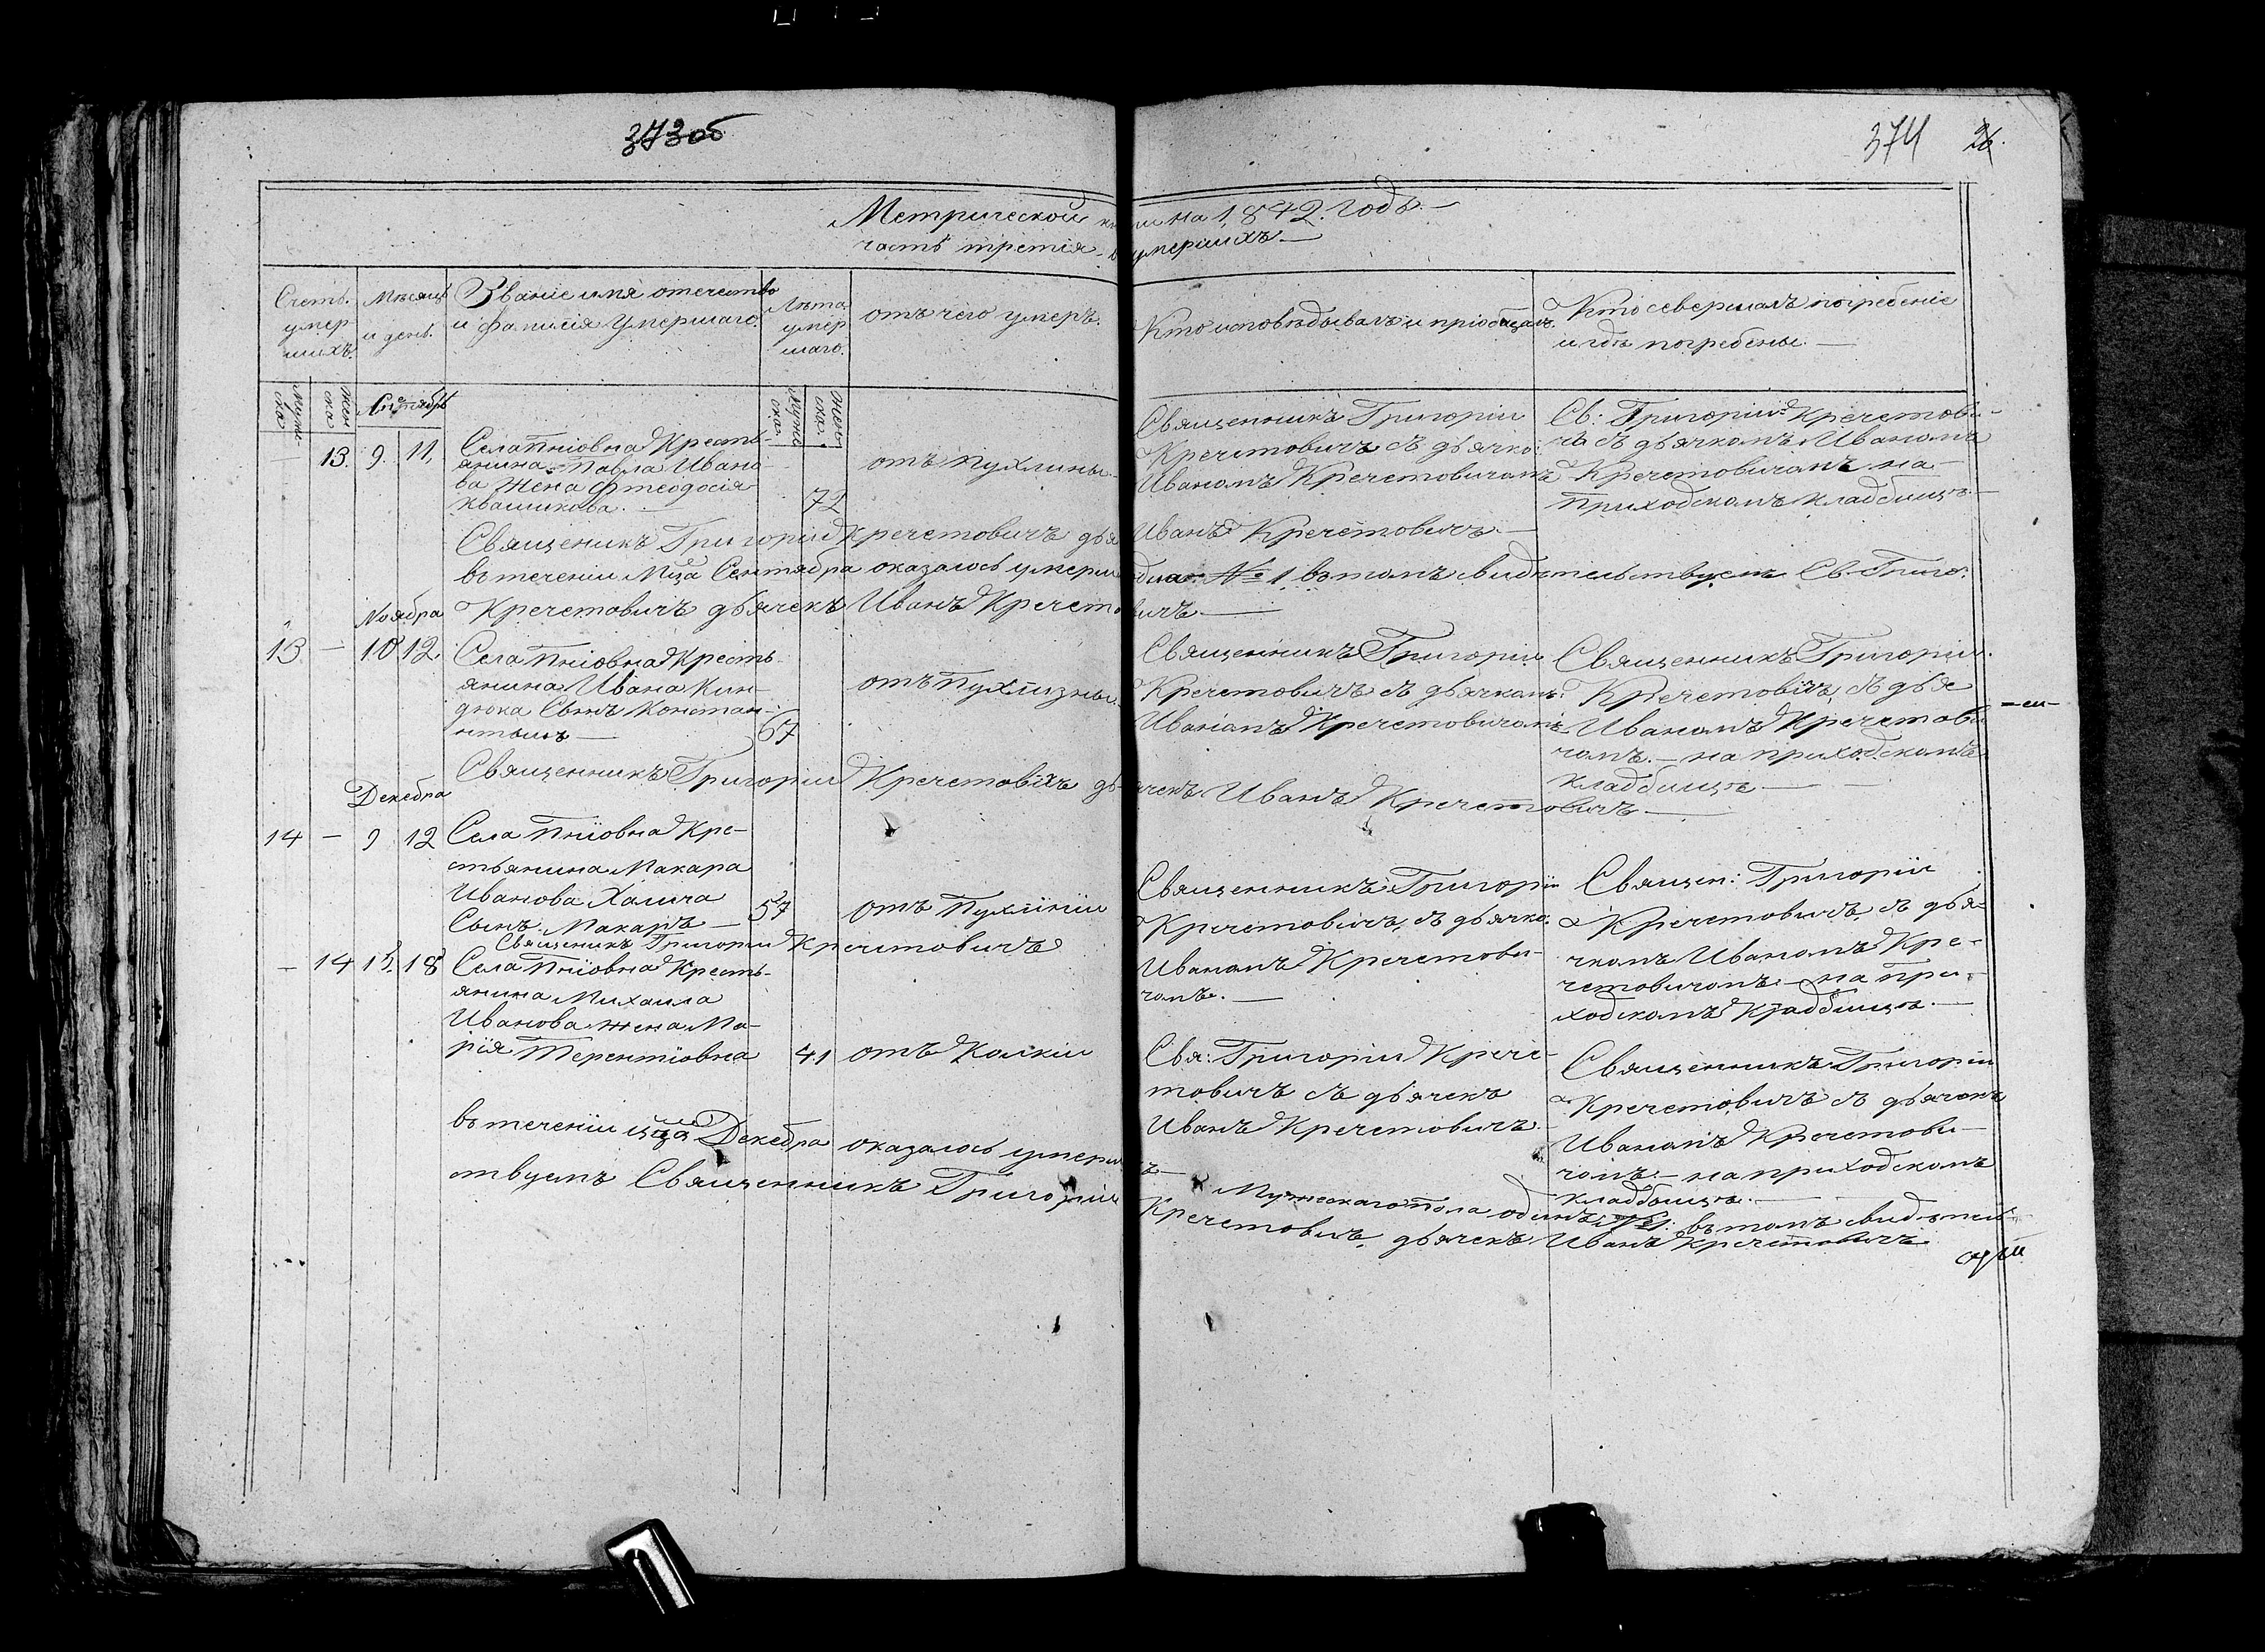 373об
374 26.
Метрической книги на 1842. Годъ. —
часть третія - умершихъ. —
Счетъ умер-шихъ.
Мѣсяцъ и день.
Званіе имя отечество
и фамилія умершаго.
Лѣта умер шаго.
отъ чего умеръ.
Кто исповѣдывалъ и пріобщалъ.
Кто совершалъ погребеніе
и гдѣ погребены. —
муже ска
жен ска
Сентябрь
муже ска.
жен ска.
13. 9. 11.
Села Пніовна Кресть-
янина Павла Ивано-
ва жена Фтеодосія
Квашикова. —
72
отъ пухлины
Священникъ Григоріи
Кречетовичъ съ дьячко:
Иваномъ Кречетовичомъ
Св: Григоріи Кречетови-
чъ съ дьячкомъ Иваномъ
Кречетовичомъ на
приходскомъ кладбищѣ. —
Священикъ Григоріи Кречетовичъ дья Иванъ Кречетовичъ. —
въ теченіи Мца Сентября оказалось умерш одна № 1 въ томъ свидѣтельствуетъ Св. Григо.
Кречетовичъ дьячекъ Иванъ Кречетовичъ. —
Ноября
13 — 10 12.
Села Пніовна Кресть-
янина Ивана Кин-
дюка Сынъ Констан-
нтынъ —
67
отъ Пухлизны
Священникъ Григоріи
Кречетовичъ съ дьячкомъ:
Иваномъ Кречетовичомъ
Священникъ Григоріи
Кречетовичъ, съ дья
Иваномъ Кречетови
чомъ. — на приходскомъ
кладбищѣ —
Священникъ Григоріи Кречетовичъ дьячекъ Иванъ Кречетовичъ —
Декебра
14 — 9 12
Села Пніовна Кре-
стьянина Макара
Иванова Халича
Сынъ Макаръ —
57
отъ Пухлініи
Священникъ Григоріи
Кречетовичъ, съ дьячко:
Иваномъ Кречетови-
чомъ. —
Священ: Григоріи
Кречетовичъ съ дья-
чкомъ Иваномъ Кре-
четовичомъ — на при-
ходскомъ кладбищѣ. —
Священикъ Григоріи Кречетовичъ
— 14 15. 18
Села Пніовна Кресть-
янина Михаила
Иванова жена Ма-
рія Терентіовна
41
отъ Колкіи
Свя: Григоріи Крече-
товичъ съ дьячекъ
Иванъ Кречетовичъ.
Священникъ Григоріи
Кречетовичъ съ дьячокъ
Иваномъ Кречетови-
чомъ — на приходскомъ
кладбищѣ. —
въ теченіи мца Декебра оказалось умерш
Мужескаго пола одинъ № 1. въ томъ свидѣтель
ствуетъ Священникъ Григоріи Кречетовичъ, дьячекъ Иванъ Кречетовичъ